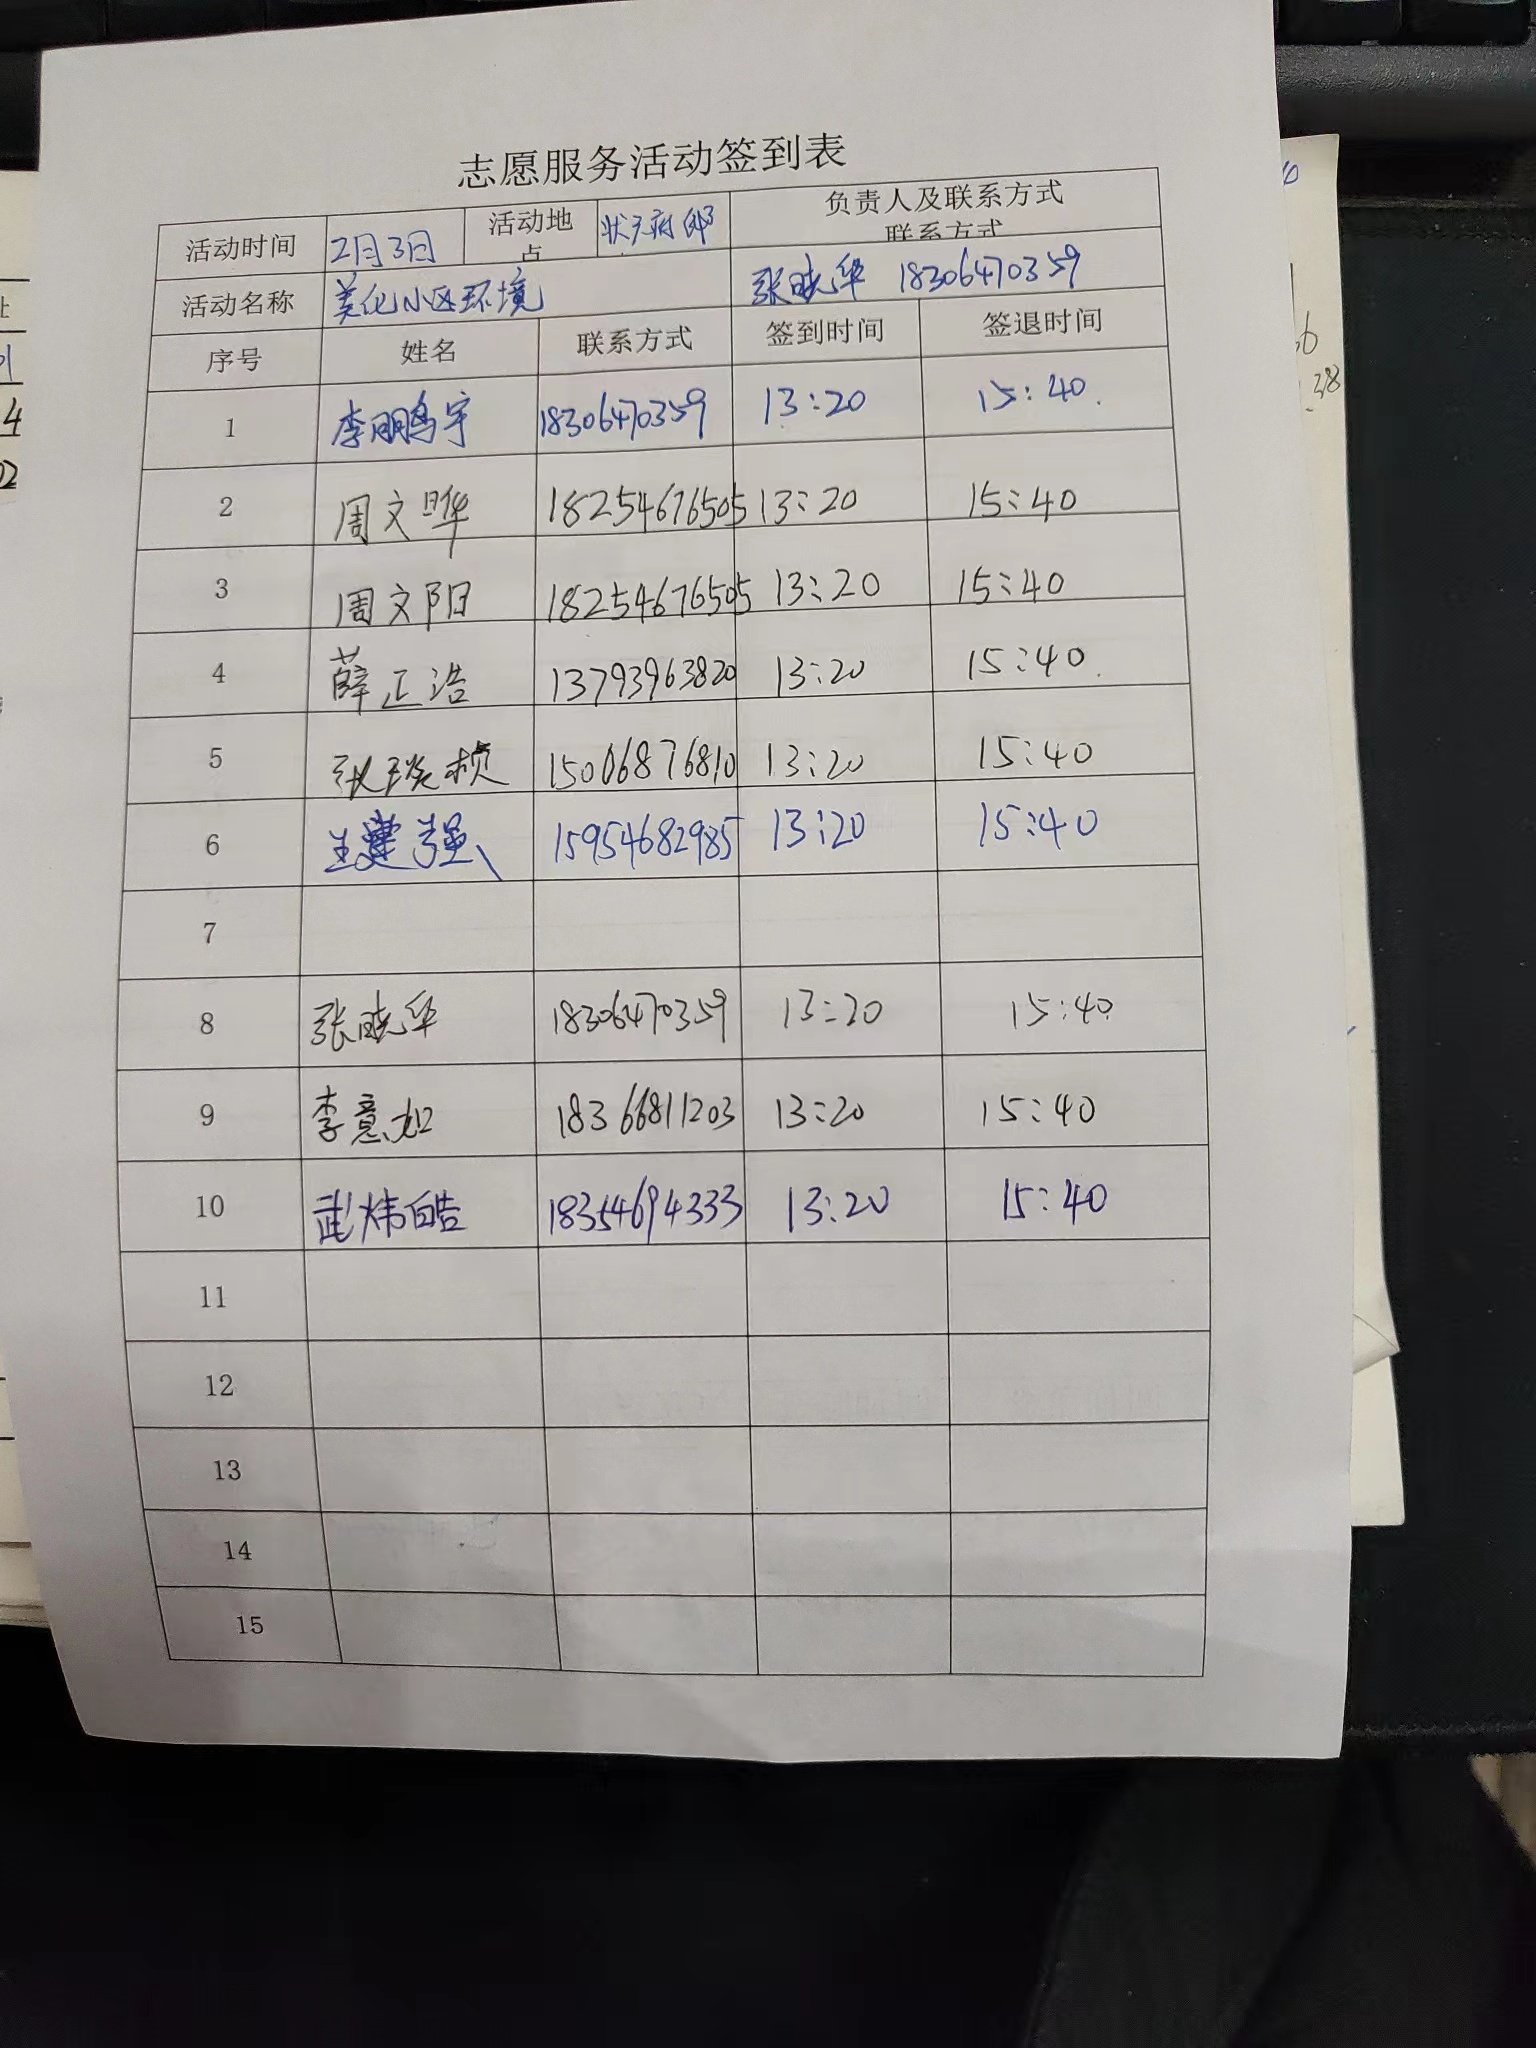 志愿服务活动签到表
活动时间 2月3日 活动地点 状元府邸 负责人及联系方式
联系方式
活动名称 美化小区环境 张晓华 18306470359
序号 姓名 联系方式 签到时间 签退时间
1 李鹏宇 18306470359 13:20 15:40.
2 周文晔 18254676505 13:20 15:40
3 周文阳 18254676505 13:20 15:40
4 薛正浩 13793963820 13:20 15:40.
5 15006876810 13:20 15:40
6 王建强 15954682985 13:20 15:40
7
8 张晓华 18306470359 13:20 15:40.
9 李意如 18366811203 13:20 15:40
10 武炜皓 18354694333 13:20 15:40
11
12
13
14
15